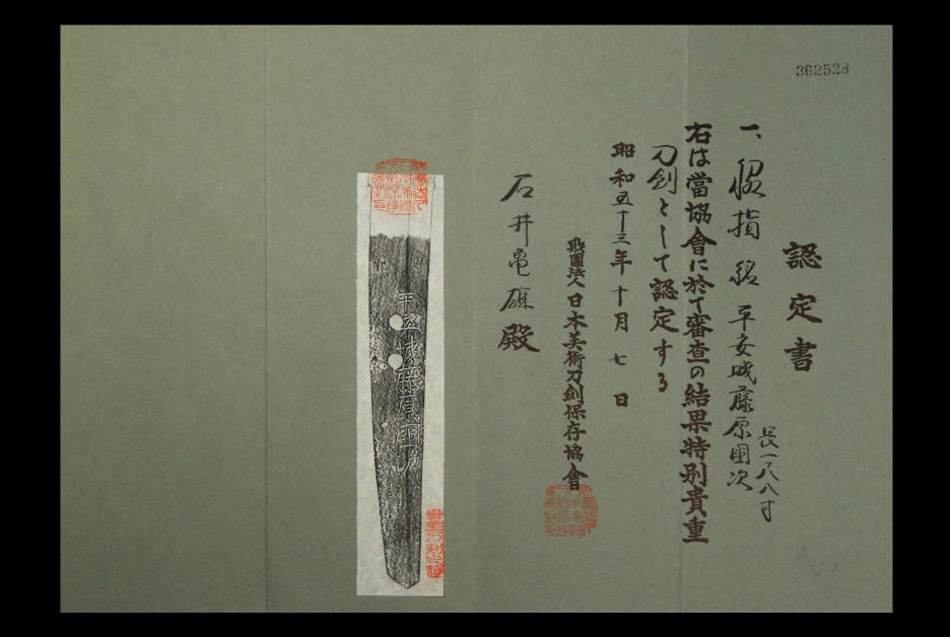 362528
認定書
一、脇指 銘 平安城藤原國次
長一尺八寸
右は當協會に於て審査の結果特別貴重
刀劍として認定する
昭和五十三年十月七日
財團法人日本美術刀劍保存協會
石井亀雄殿